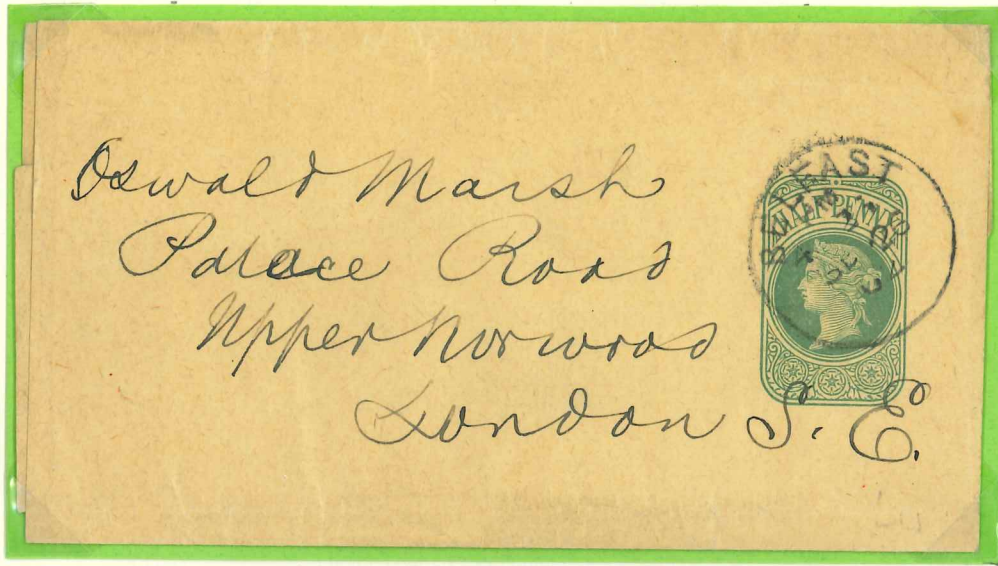 Oswald Marsh
Palace Road
Upper Norwood
London S. E.
BELFAST
HALFPENNY